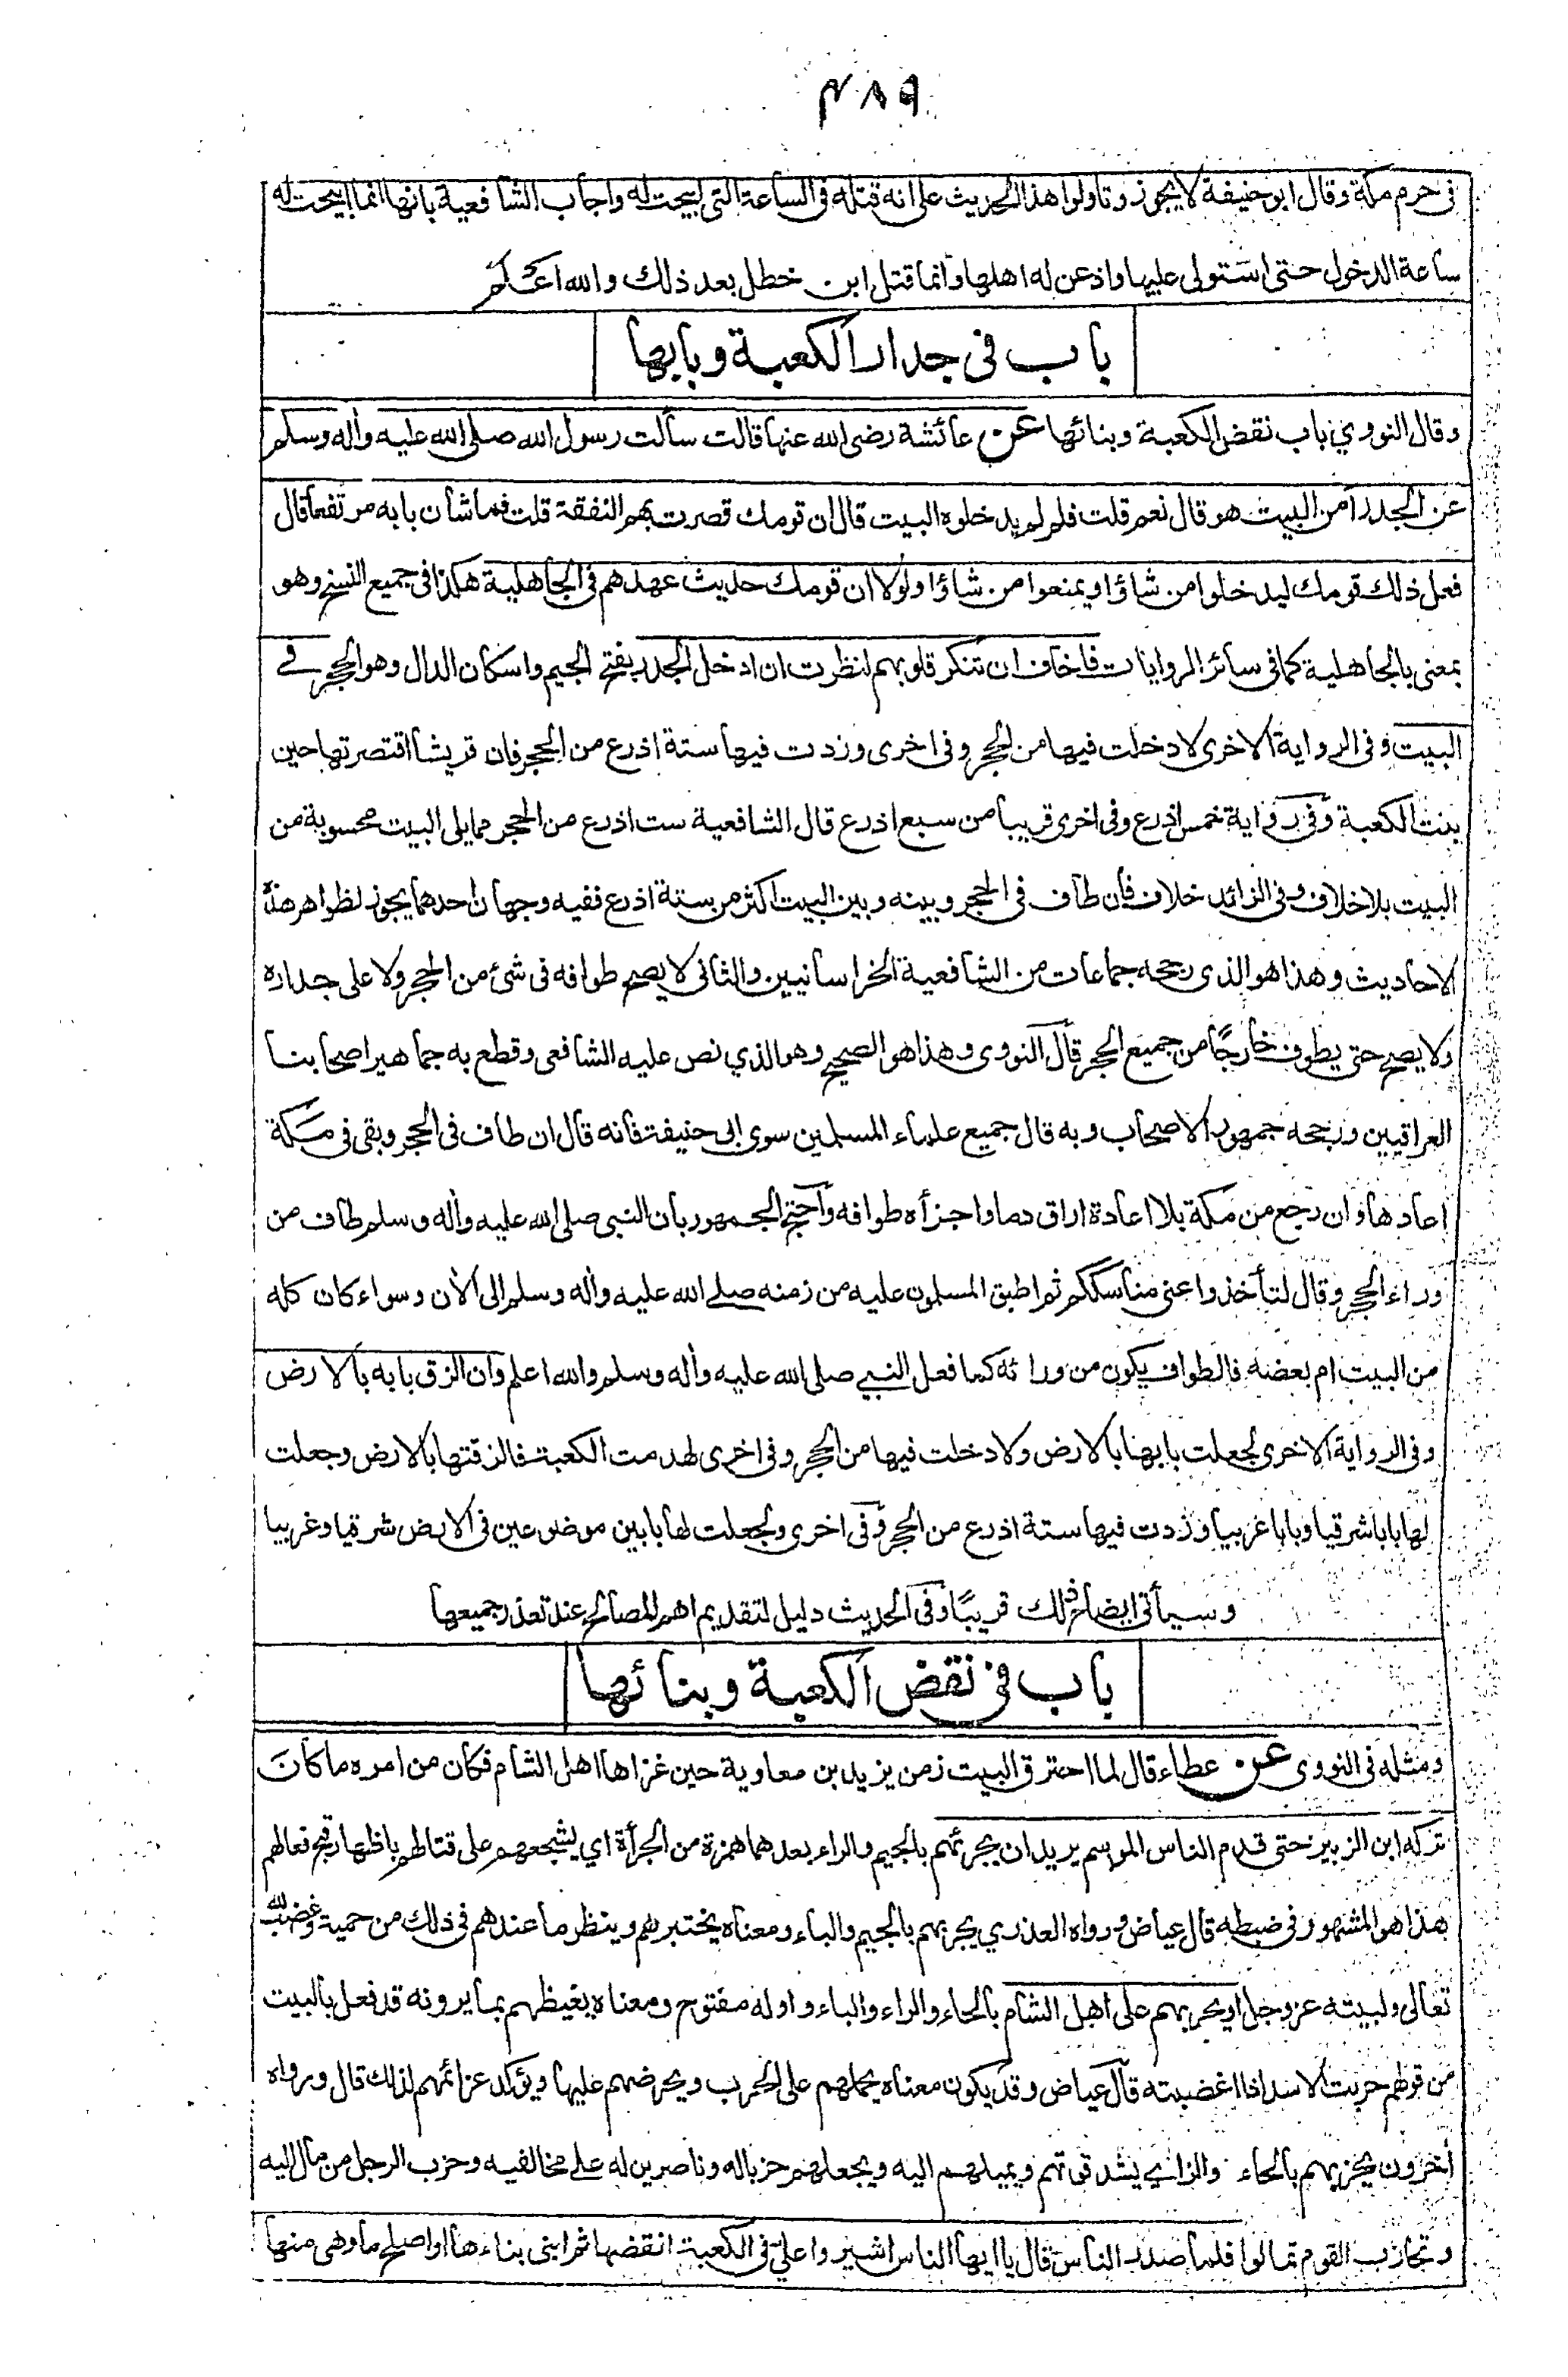 ٤٨٩
فى حرم مكة وقال ابو حنيفة لا يجوز وتاولوا هذا الحديث على انه قتله فى الساعة التى ابيحت له واجاب الشافعية بانها انما ابيحت له
ساعة الدخول حتى استولى عليها واذعن له اهلها وانما قتل ابن خطل بعد ذلك والله اعلم
باب فى جدار الكعبة وبابها
وقال النووي باب نقض الكعبة وبنائها عن عائشة رضى الله عنها قالت سألت رسول الله صلى الله عليه واٰله وسلم
عن الجدر أمن البيت هو قال نعم قلت فلم لم يدخلوه البيت قال ان قومك قصرت بهم النفقة قلت فما شأن بابه مرتفعا قال
فعل ذلك قومك ليدخلوا من شاؤا ويمنعوا من شاؤا ولولا ان قومك حديث عهدهم فى الجاهلية هكذا فى جميع النسخ وهو
بمعنى بالجاهلية كما فى سائر الروايات فاخاف ان تنكر قلوبهم لنظرت ان ادخل الجدر بفتح الجيم واسكان الدال وهو الحجر فے
البيت وفى الرواية الاخرى لادخلت فيها من الحجر وفى اخرى وزدت فيها ستة اذرع من الحجر فان قريشا اقتصرتها حين
بنت الكعبة وفى رواية خمس اذرع وفى اخرى قريبا من سبع اذرع قال الشافعية ست اذرع من الحجر مما يلى البيت محسوبة من
البيت بلا خلاف وفى الزائد خلاف فان طاف فى الحجر وبينه وبين البيت اكثر من ستة اذرع ففيه وجهان احدهما يجوز لظواهر هذه
الاحاديث وهذا هو الذى رجحه جماعات من الشافعية الخراسانيين والثانى لا يصح طوافه فى شئ من الحجر ولا على جداره
ولا يصح حتى يطوف خارجًا من جميع الحجر قال النووى وهذا هو الصحيح وهو الذي نص عليه الشافعى وقطع به جماهير اصحابنا
العراقيين ورجحه جمهور الاصحاب وبه قال جميع علماء المسلمين سوى ابى حنيفة فانه قال ان طاف فى الحجر وبقى فى مكة
اعادها وان رجع من مكة بلا اعادة اراق دما واجزأه طوافه واحتج الجمهور بان النبى صلى الله عليه واٰله وسلم طاف من
وراء الحجر وقال لتأخذوا عنى مناسككم ثم اطبق المسلمون عليه من زمنه صلے الله عليه واٰله وسلم الى الاٰن وسواء كان كله
من البيت ام بعضه فالطواف يكون من ورائه كما فعل النبے صلى الله عليه واٰله وسلم والله اعلم وان الزق بابه بالارض
وفى الرواية الاخرى لجعلت بابها بالارض ولادخلت فيها من الحجر وفى اخرى لهدمت الكعبة فالزقتها بالارض وجعلت
لها بابا شرقيا وبابا غربيا وزدت فيها ستة اذرع من الحجر وفى اخرى ولجعلت لها بابين موضوعين فى الارض شرقيا وغربيا
وسيأتى ايضاح ذلك قريبًا وفى الحديث دليل لتقديم اهم المصالح عند تعذر جميعها
باب فى نقض الكعبة وبنائها
ومثله فى النووى عن عطاء قال لما احترق البيت زمن يزيد بن معاوية حين غزاها اهل الشام فكان من امره ما كان
تركه ابن الزبير حتى قدم الناس الموسم يريد ان يجرئهم بالجيم والراء بعدهما همزة من الجرأة اي يشجعهم على قتالهم باظهار قبح فعالهم
هذا هو المشهور فى ضبطه قال عياض ورواه العذري يجربهم بالجيم والباء ومعناه يختبرهم وينظر ما عندهم فى ذلك من حمية وغضب لله
تعالى ولبيته عز وجل او يحربهم على اهل الشام بالحاء والراء والباء واوله مفتوح ومعناه يغيظهم بما يرونه قد فعل بالبيت
من قولهم حربت الاسد اذا اغضبته قال عياض وقد يكون معناه يحملهم على الحرب ويحرضهم عليها ويؤكد عزائمهم لذلك قال ورواه
اٰخرون يحزبهم بالحاء والزاے يشد قوتهم ويميلهم اليه ويجعلهم حزبا له وناصرين له علے مخالفيه وحزب الرجل من مال اليه
وتحازب القوم تمالوا فلما صدر الناس قال يا ايها الناس اشيروا علىّ فى الكعبة انقضها ثم ابنى بناءها او اصلح ما وهى منها